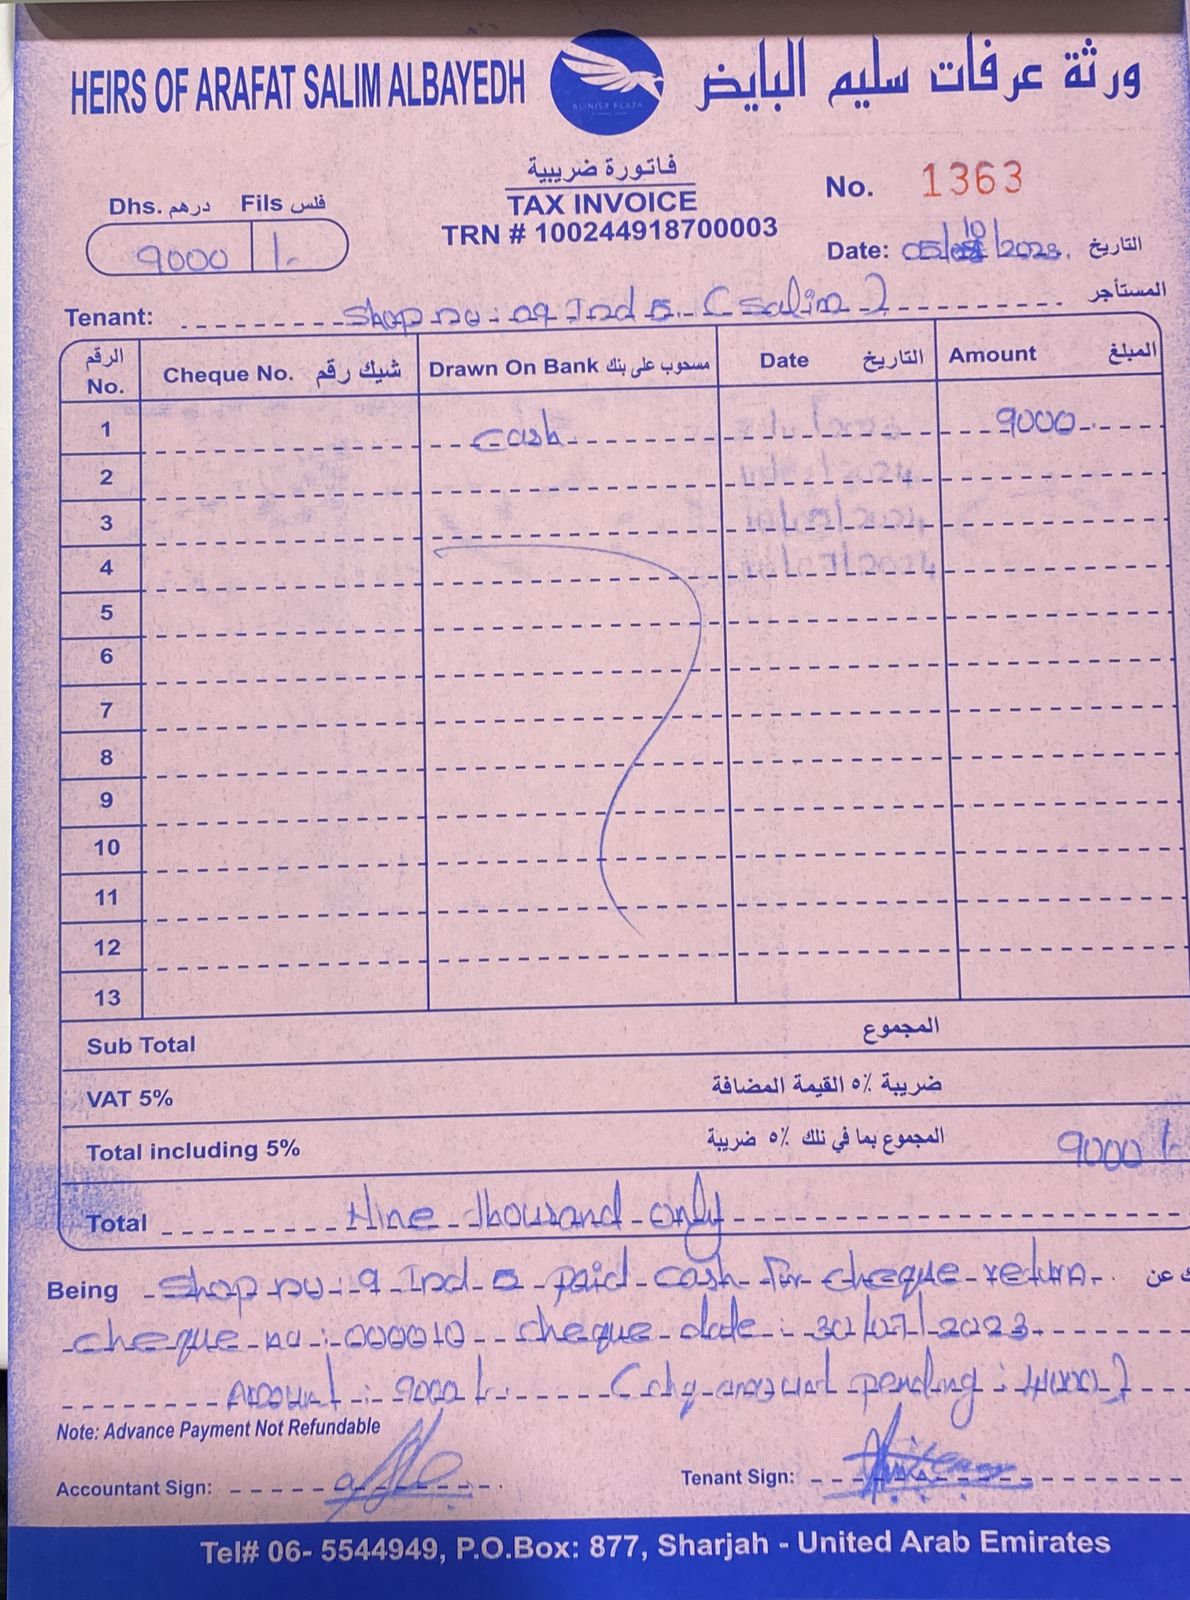 HEIRS OF ARAFAT SALIM ALBAYEDH
ورثة عرفات سليم البايض
AL NISR PLAZA
فاتورة ضريبية
TAX INVOICE
TRN # 100244918700003
No. 1363
Dhs. درهم Fils فلس
9000 /-
Date: 05/10/2023. التاريخ
Tenant: Shop no : 09 Ind 5. (Salim) المستأجر
الرقم No. Cheque No. شيك رقم Drawn On Bank مسحوب على بنك Date التاريخ Amount المبلغ
1 Cash 9000
2
3
4
5
6
7
8
9
10
11
12
13
Sub Total المجموع
VAT 5% ضريبة ٥٪ القيمة المضافة
Total including 5% المجموع بما في ذلك ٥٪ ضريبة 9000/-
Total Nine Thousand only
Being Shop no : 9 Ind 5 paid cash for cheque return.
cheque no : 000010 cheque date : 30/07/2023
Amount : 9000/-. (chq amount pending : 4000)
Note: Advance Payment Not Refundable
Accountant Sign:
Tenant Sign:
Tel# 06- 5544949, P.O.Box: 877, Sharjah - United Arab Emirates